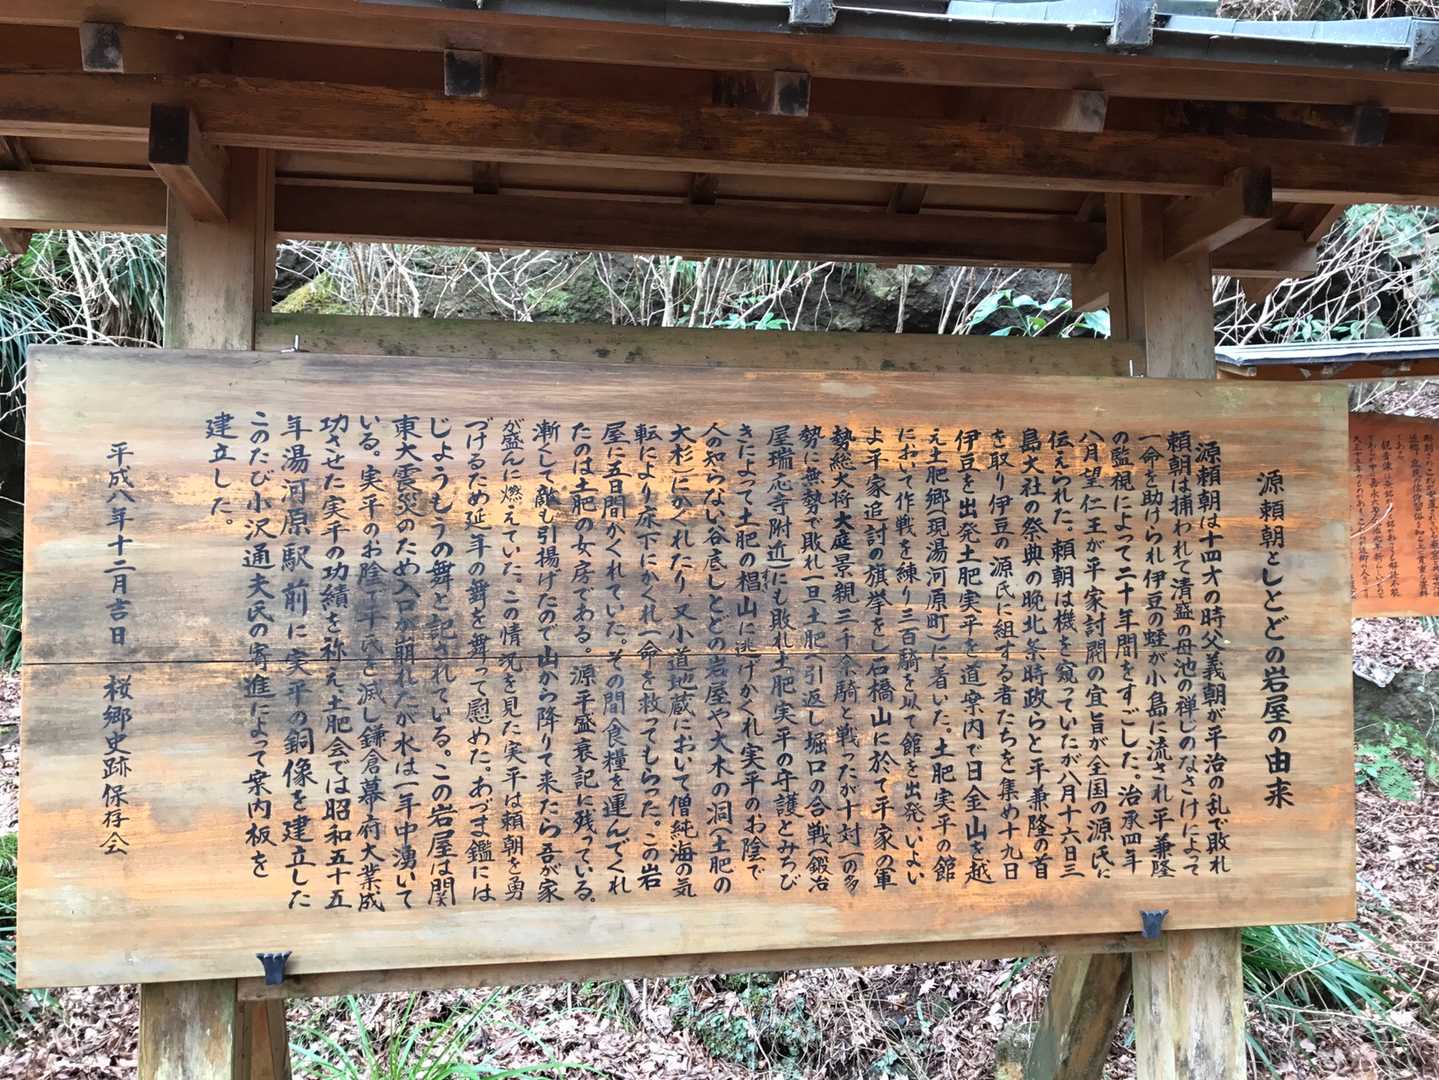 源頼朝としとどの岩屋の由来
源頼朝は十四才の時父義朝が平治の乱で敗れ
頼朝は捕われて清盛の母池の禅じのなさけによって
一命を助けられ伊豆の蛭が小島に流され平兼隆
の監視によって二十年間をすごした。治承四年
八月望仁王が平家討閣の宣旨が全国の源氏に
伝えられた、頼朝は機を窺っていたが八月十六日三
島大社の祭典の晩北条時政らと平兼隆の首
を取り伊豆の源氏に組する者たちを集め十九日
伊豆を出発土肥実平を道案内で日金山を越
え土肥郷現湯河原町)に着いた。土肥実平の館
において作戦を練り三百騎を以て館を出発、いよい
よ平家追討の旗挙をし石橋山に於て平家の軍
勢総大将大庭景親三千余騎と戦ったが十対一の多
勢に無勢で敗れ一旦土肥へ引返し堀口の合戦(鍛冶
屋瑞応寺附近)にも敗れ土肥実平の守護とみちび
きによって土肥の椙山に逃げかくれ実平のお陰で
人の知らない谷底しとどの岩屋や大木の洞(土肥の
大杉)にかくれたり又小道地蔵において僧純海の気
転により床下にかくれ一命を救ってもらった。この岩
屋に五日間かくれていた。その間食糧を運んでくれ
たのは土肥の女房である。源平盛衰記に残っている。
漸くして敵も引揚げたので山から降りて来たら吾が家
が盛んに燃えていた。この情況を見た実平は頼朝を勇
づけるため延年の舞を舞って慰めた。あづま鑑には
じようもうの舞と記されている。この岩屋は関
東大震災のため入口が崩れたが水は一年中湧いて
いる。実平のお陰で平氏を滅し鎌倉幕府大業成
功させた実平の功績を称え土肥会では昭和五十五
年湯河原駅前に実平の銅像を建立した
このたび小沢通夫氏の寄進によって案内板を
建立した。
平成八年十二月吉日 桜郷史跡保存会